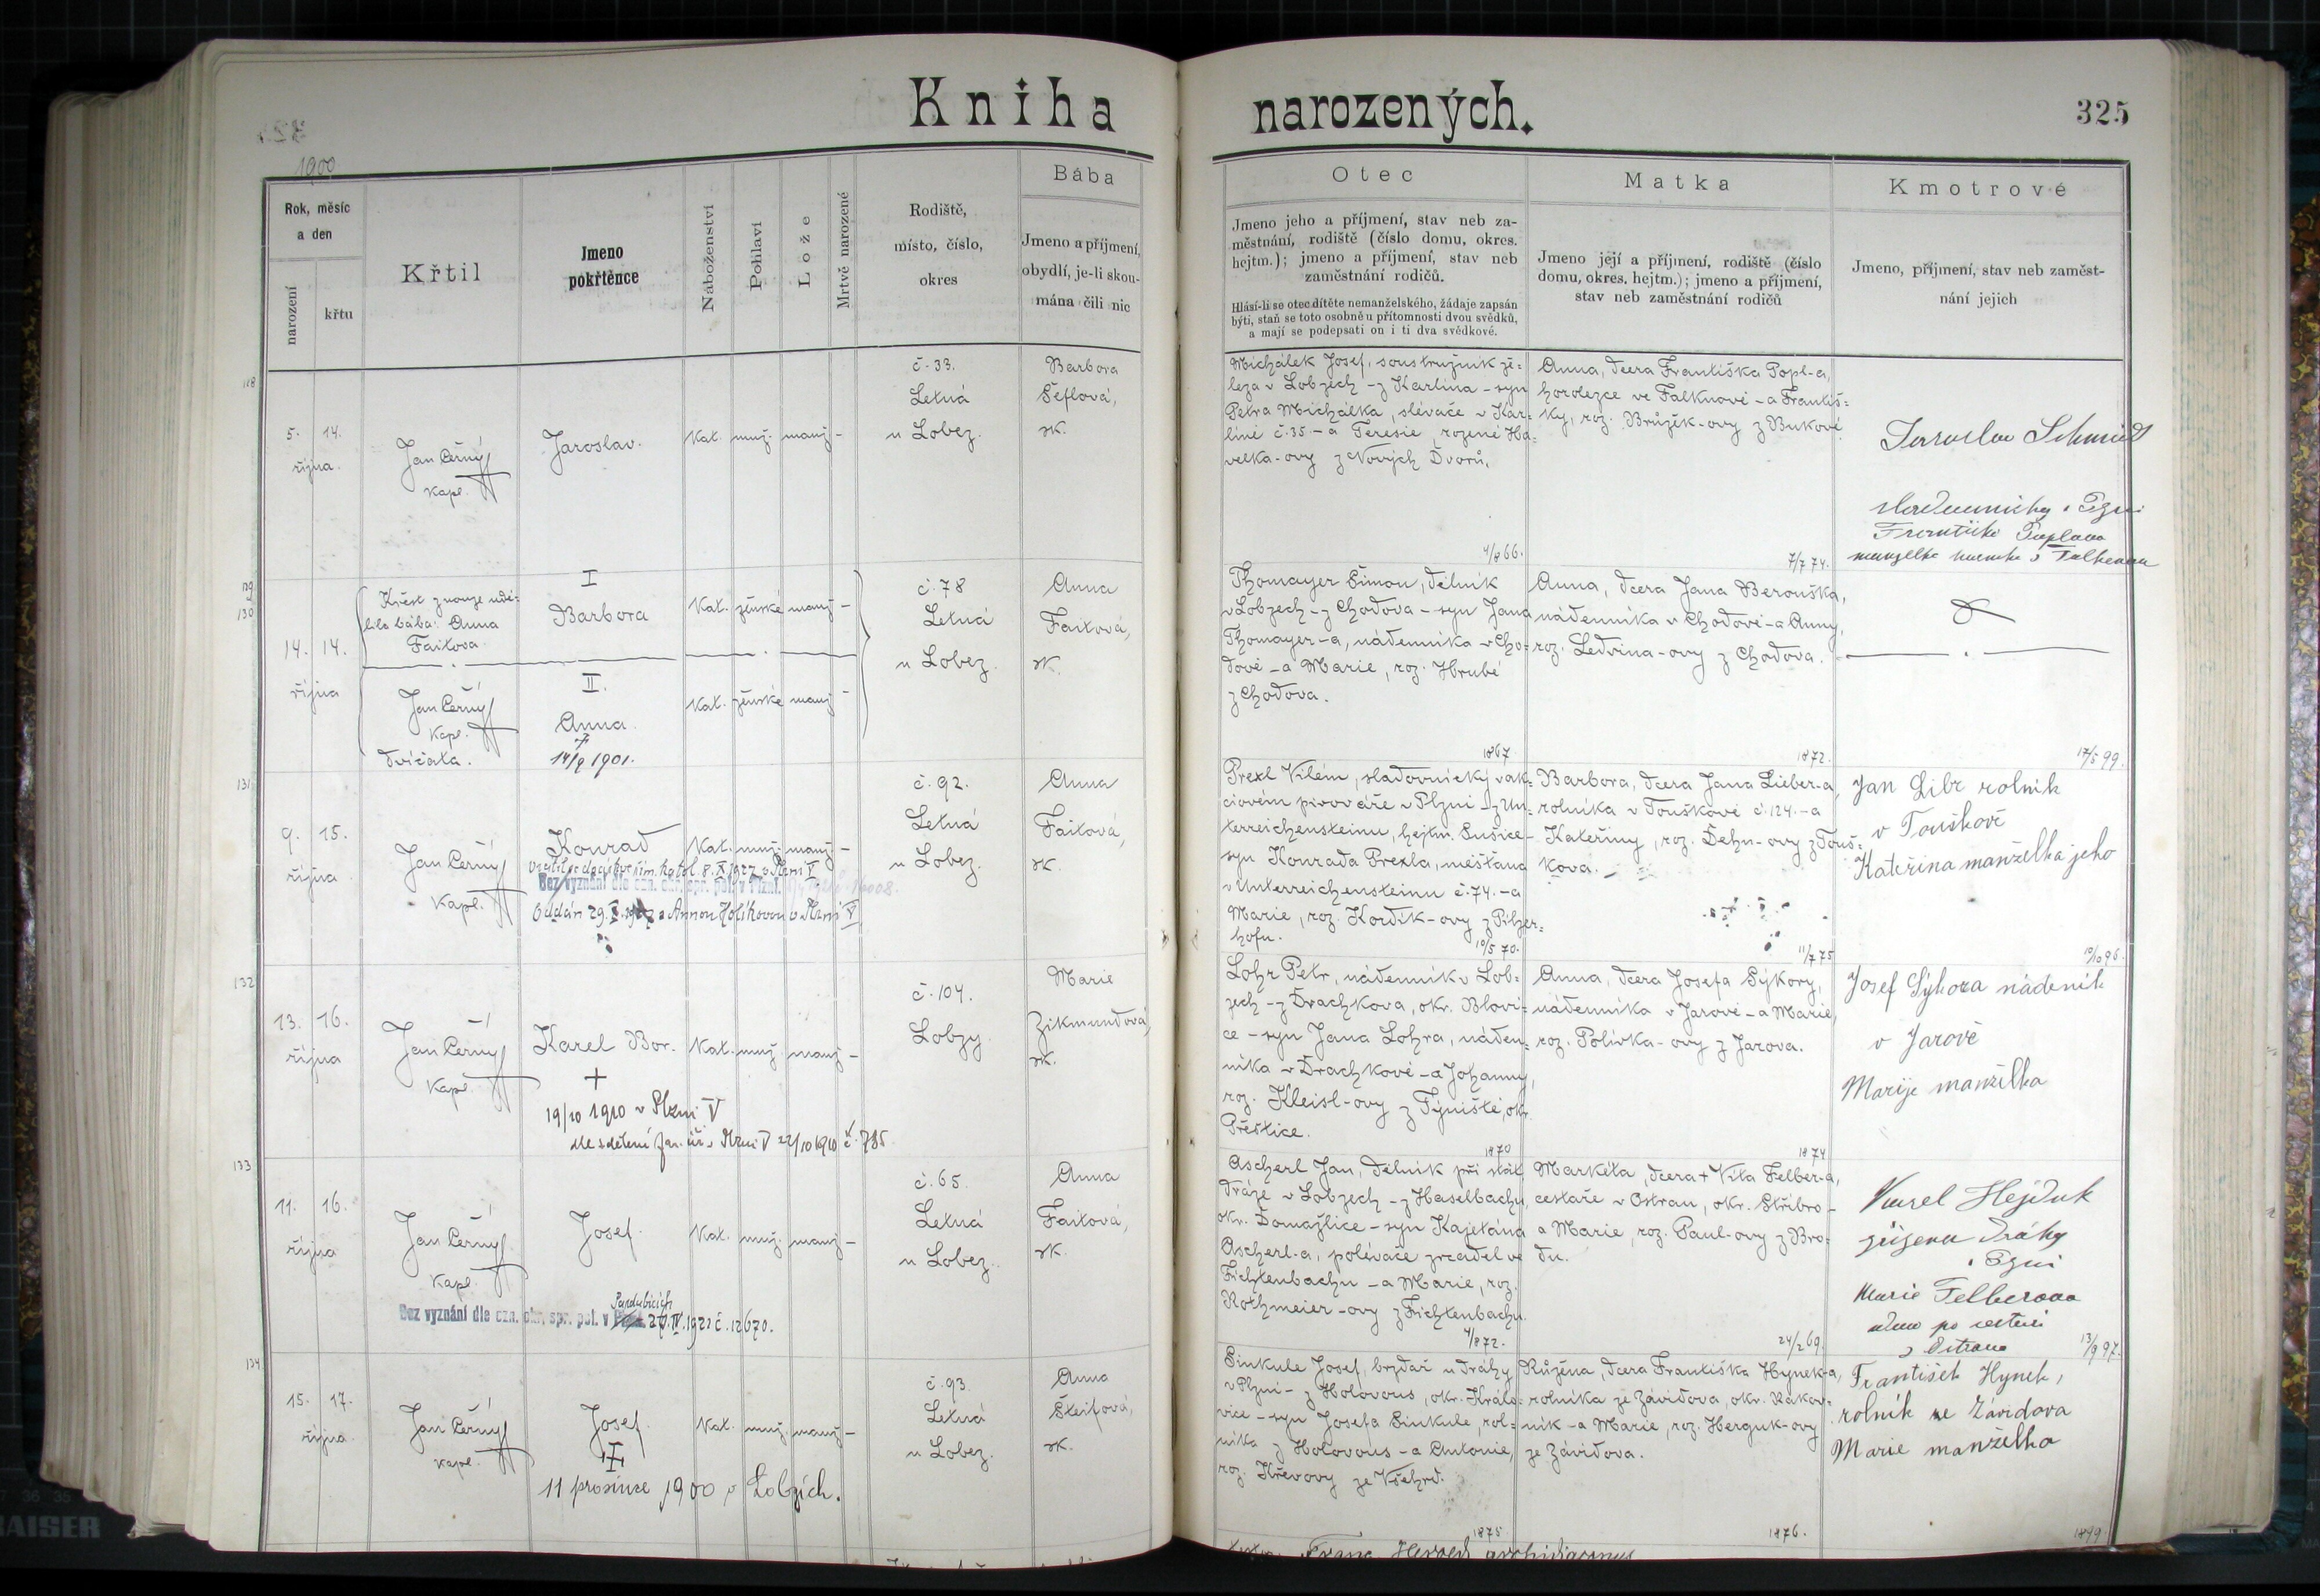 Kniha narozených.
325
1900
Rok, měsíc
a den
narození
křtu
Křtil
Jmeno
pokřtěnce
Náboženství
Pohlaví
Lože
Mrtvě narozené
Rodiště,
místo, číslo,
okres
Bába
Jmeno a příjmení,
obydlí, je-li skou-
mána čili nic
Otec
Jmeno jeho a příjmení, stav neb za-
městnání, rodiště (číslo domu, okres.
hejtm.); jmeno a příjmení, stav neb
zaměstnání rodičů.
Hlásí-li se otec dítěte nemanželského, žádaje zapsán
býti, staň se toto osobně u přítomnosti dvou svědků,
a mají se podepsati on i ti dva svědkové.
Matka
Jmeno její a příjmení, rodiště (číslo
domu, okres. hejtm.); jmeno a příjmení,
stav neb zaměstnání rodičů
Kmotrové
Jmeno, příjmení, stav neb zaměst-
nání jejich
5. 14.
října.
Jan Černý
kapl.
Jaroslav.
Kat. muž. manž -
č. 33.
Letná
u Lobez.
Barbora
Šeflová,
zk.
Michálek Josef, soustružník že-
leza v Lobzech - z Karlína - syn
Petra Michálka, slévače v Kar-
líně č. 35. - a Teresie, rozené Ha-
velka-ovy z Nových Dvorů.
4/8 66.
Anna, dcera Františka Popl-a,
horolezce ve Falknově - a Františ-
ky, roz. Brůžěk-ovy z Bukové.
7/7 74.
Jaroslav Schmidt
129
130
14. 14.
října
Křest z nouze udě-
lila bába: Anna
Faitova
I
Barbora
Kat. ženské manž -
Jan Černý
kapl.
dvíčata.
II.
Anna
14/9 1901.
Kat. ženské manž -
č. 78
Letná
u Lobez.
Anna
Faitová,
zk.
Thomayer Šimon, dělník
v Lobzech - z Chodova - syn Jana
Thomayer-a, nádenníka v Cho-
dově - a Marie, roz. Hrubé
z Chodova.
1867
Anna, dcera Jana Berouška,
nádenníka v Chodově - a Anny,
roz. Ledvina-ovy z Chodova.
1872.
17/5 99.
131
9. 15.
října
Jan Černý
Kapl.
Konrad
Kat. muž. manž. -
Bez vyznání dle ozn. okr. spr. pol. v Plzni.
č. 92.
Letná
u Lobez.
Anna
Faitová,
zk.
Prexl Vilém, sladovnický v ak-
ciovém pivováře v Plzni - z Un-
terreichensteinu, hejtm. Sušice -
syn Konrada Prexla, měšťana
v Unterreichensteinu č. 74. - a
Marie, roz. Kordík-ovy z Pilzer-
hofu.
10/5 70.
Barbora, dcera Jana Lieber-a,
rolníka v Touškově č. 124. - a
Kateřiny, roz. Dehn-ovy z Touš-
kova.
11/7 75
Jan Libr rolník
v Touškově
Kateřina manželka jeho
10/10 96.
132
13. 16.
října
Jan Černý
Kapl.
Karel Bor.
+
19/10 1910 v Plzni V
dle sdělení far. úř. v Plzni V 22/10 1910 č. 785
Kat. muž. manž -
č. 104.
Lobzy
Marie
Zikmundová,
zk.
Lohr Petr, nádenník v Lob-
zech - z Drachkova, okr. Blovi-
ce - syn Jana Lohra, náden-
níka v Drachkově - a Johanny,
roz. Kleisl-ovy z Týniště, okr.
Přeštice.
1870
Anna, dcera Josefa Sýkory,
nádenníka v Jarově - a Marie,
roz. Polívka-ovy z Jarova.
1874
Josef Sýkora nádeník
v Jarově
Marije manželka
133
11. 16.
října
Jan Černý
Kapl.
Josef.
Kat. muž. manž -
Bez vyznání dle ozn. okr. spr. pol. v Pardubicích
1921 č. 12670.
č. 65.
Letná
u Lobez.
Anna
Faitová,
zk.
Ascherl Jan, dělník při stát.
dráze v Lobzech - z Haselbachu,
okr. Domažlice - syn Kajetána
Ascherl-a, polévače zrcadel ve
Fichtenbachu - a Marie, roz.
Rothmeier-ovy z Fichtenbachu.
4/8 72.
Markéta, dcera + Víta Felber-a,
cestaře v Ostran, okr. Stříbro -
a Marie, roz. Paul-ovy z Bro-
du.
24/2 69.
Karel Hejduk
Marie Felberova
13/9 97.
134
15. 17.
října
Jan Černý
kapl.
Josef.
11 prosince 1900 v Lobzích.
Kat. muž. manž -
č. 93.
Letná
u Lobez.
Anna
Šteifová,
zk.
Sinkule Josef, brzdař u dráhy
v Plzni - z Holovous, okr. Králo-
vice - syn Josefa Sinkule, rol-
níka z Holovous - a Antonie,
roz. Křevovy ze Všehrd.
1875
Růžena, dcera Františka Hynek-a,
rolníka ze Závidova, okr. Rakov-
ník - a Marie, roz. Herguk-ovy
ze Závidova.
1876.
František Hynek,
rolník ze Závidova
Marie manželka
1899
Franc. Herold archidiaconus